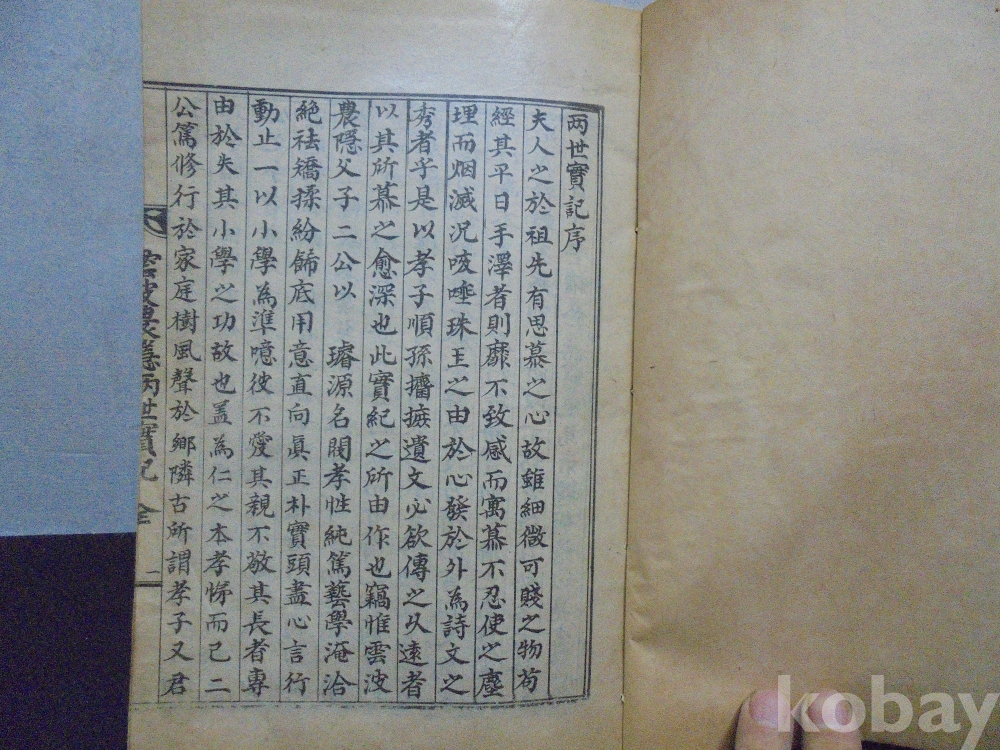 兩世實記序
夫人之於祖先有思慕之心故雖細微可賤之物苟
經其平日手澤者則靡不致感而寓慕不忍使之塵
埋而烟滅況咳唾珠玉之由於心發於外為詩文之
秀者乎是以孝子順孫搢摭遺文必欲傳之以遠者
以其所慕之愈深也此實紀之所由作也竊惟雲波
農隱父子二公以 璿源名閥孝性純篤藝學淹洽
絶祛矯揉紛餙底用意直向眞正朴實頭盡心言行
動止一以小學為準噫彼不愛其親不敬其長者專
由於失其小學之功故也盖為仁之本孝悌而已二
公篤修行於家庭樹風聲於鄉隣古所謂孝子又君
雲波農隱兩世實記 全 一
kobay